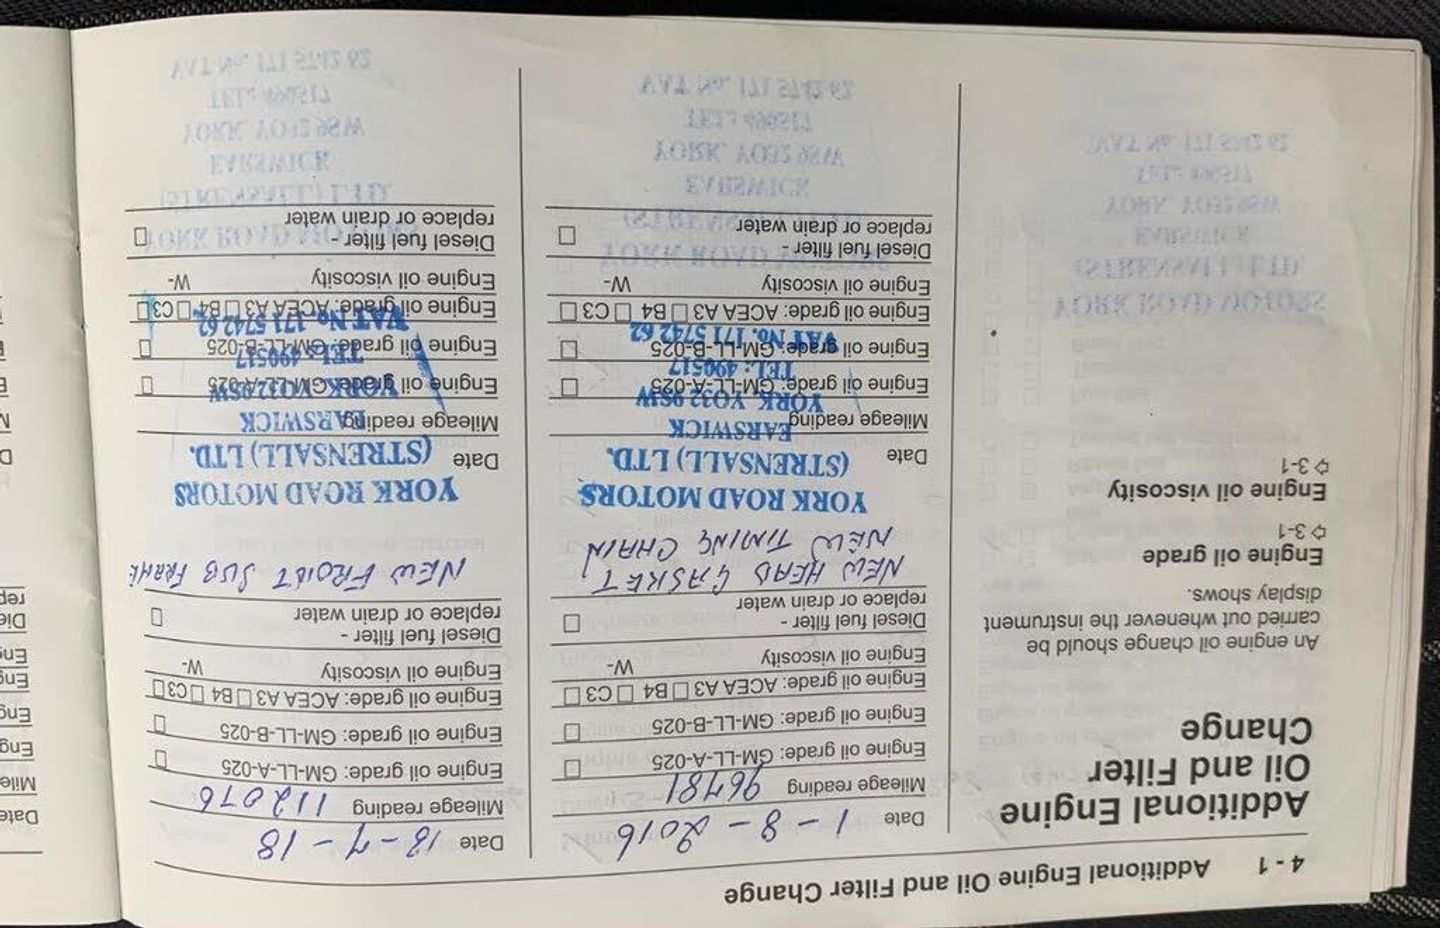 4 - 1 Additional Engine Oil and Filter Change
Additional Engine
Oil and Filter
Change
An engine oil change should be
carried out whenever the instrument
display shows.
Engine oil grade
⇨ 3-1
Engine oil viscosity
⇨ 3-1
Date 1 - 8 - 2016
Mileage reading 96481
Engine oil grade: GM-LL-A-025 □
Engine oil grade: GM-LL-B-025 □
Engine oil grade: ACEA A3 □ B4 □ C3 □
Engine oil viscosity W-
Diesel fuel filter -
replace or drain water □
NEW HEAD GASKET
NEW TIMING CHAIN
YORK ROAD MOTORS
(STRENSALL) LTD.
EARSWICK
YORK YO32 9SW
TEL: 490517
VAT No. 171 5742 62
Date
Mileage reading
Engine oil grade: GM-LL-A-025 □
Engine oil grade: GM-LL-B-025 □
Engine oil grade: ACEA A3 □ B4 □ C3 □
Engine oil viscosity W-
Diesel fuel filter -
replace or drain water □
Date 13 - 7 - 18
Mileage reading 112076
Engine oil grade: GM-LL-A-025 □
Engine oil grade: GM-LL-B-025 □
Engine oil grade: ACEA A3 □ B4 □ C3 □
Engine oil viscosity W-
Diesel fuel filter -
replace or drain water □
NEW FRONT SUB FRAME
YORK ROAD MOTORS
(STRENSALL) LTD.
EARSWICK
YORK YO32 9SW
TEL: 490517
VAT No. 171 5742 62
Date
Mileage reading
Engine oil grade: GM-LL-A-025 □
Engine oil grade: GM-LL-B-025 □
Engine oil grade: ACEA A3 □ B4 □ C3 □
Engine oil viscosity W-
Diesel fuel filter -
replace or drain water □
Date
Mile
Eng
Eng
Eng
Eng
Die
rep